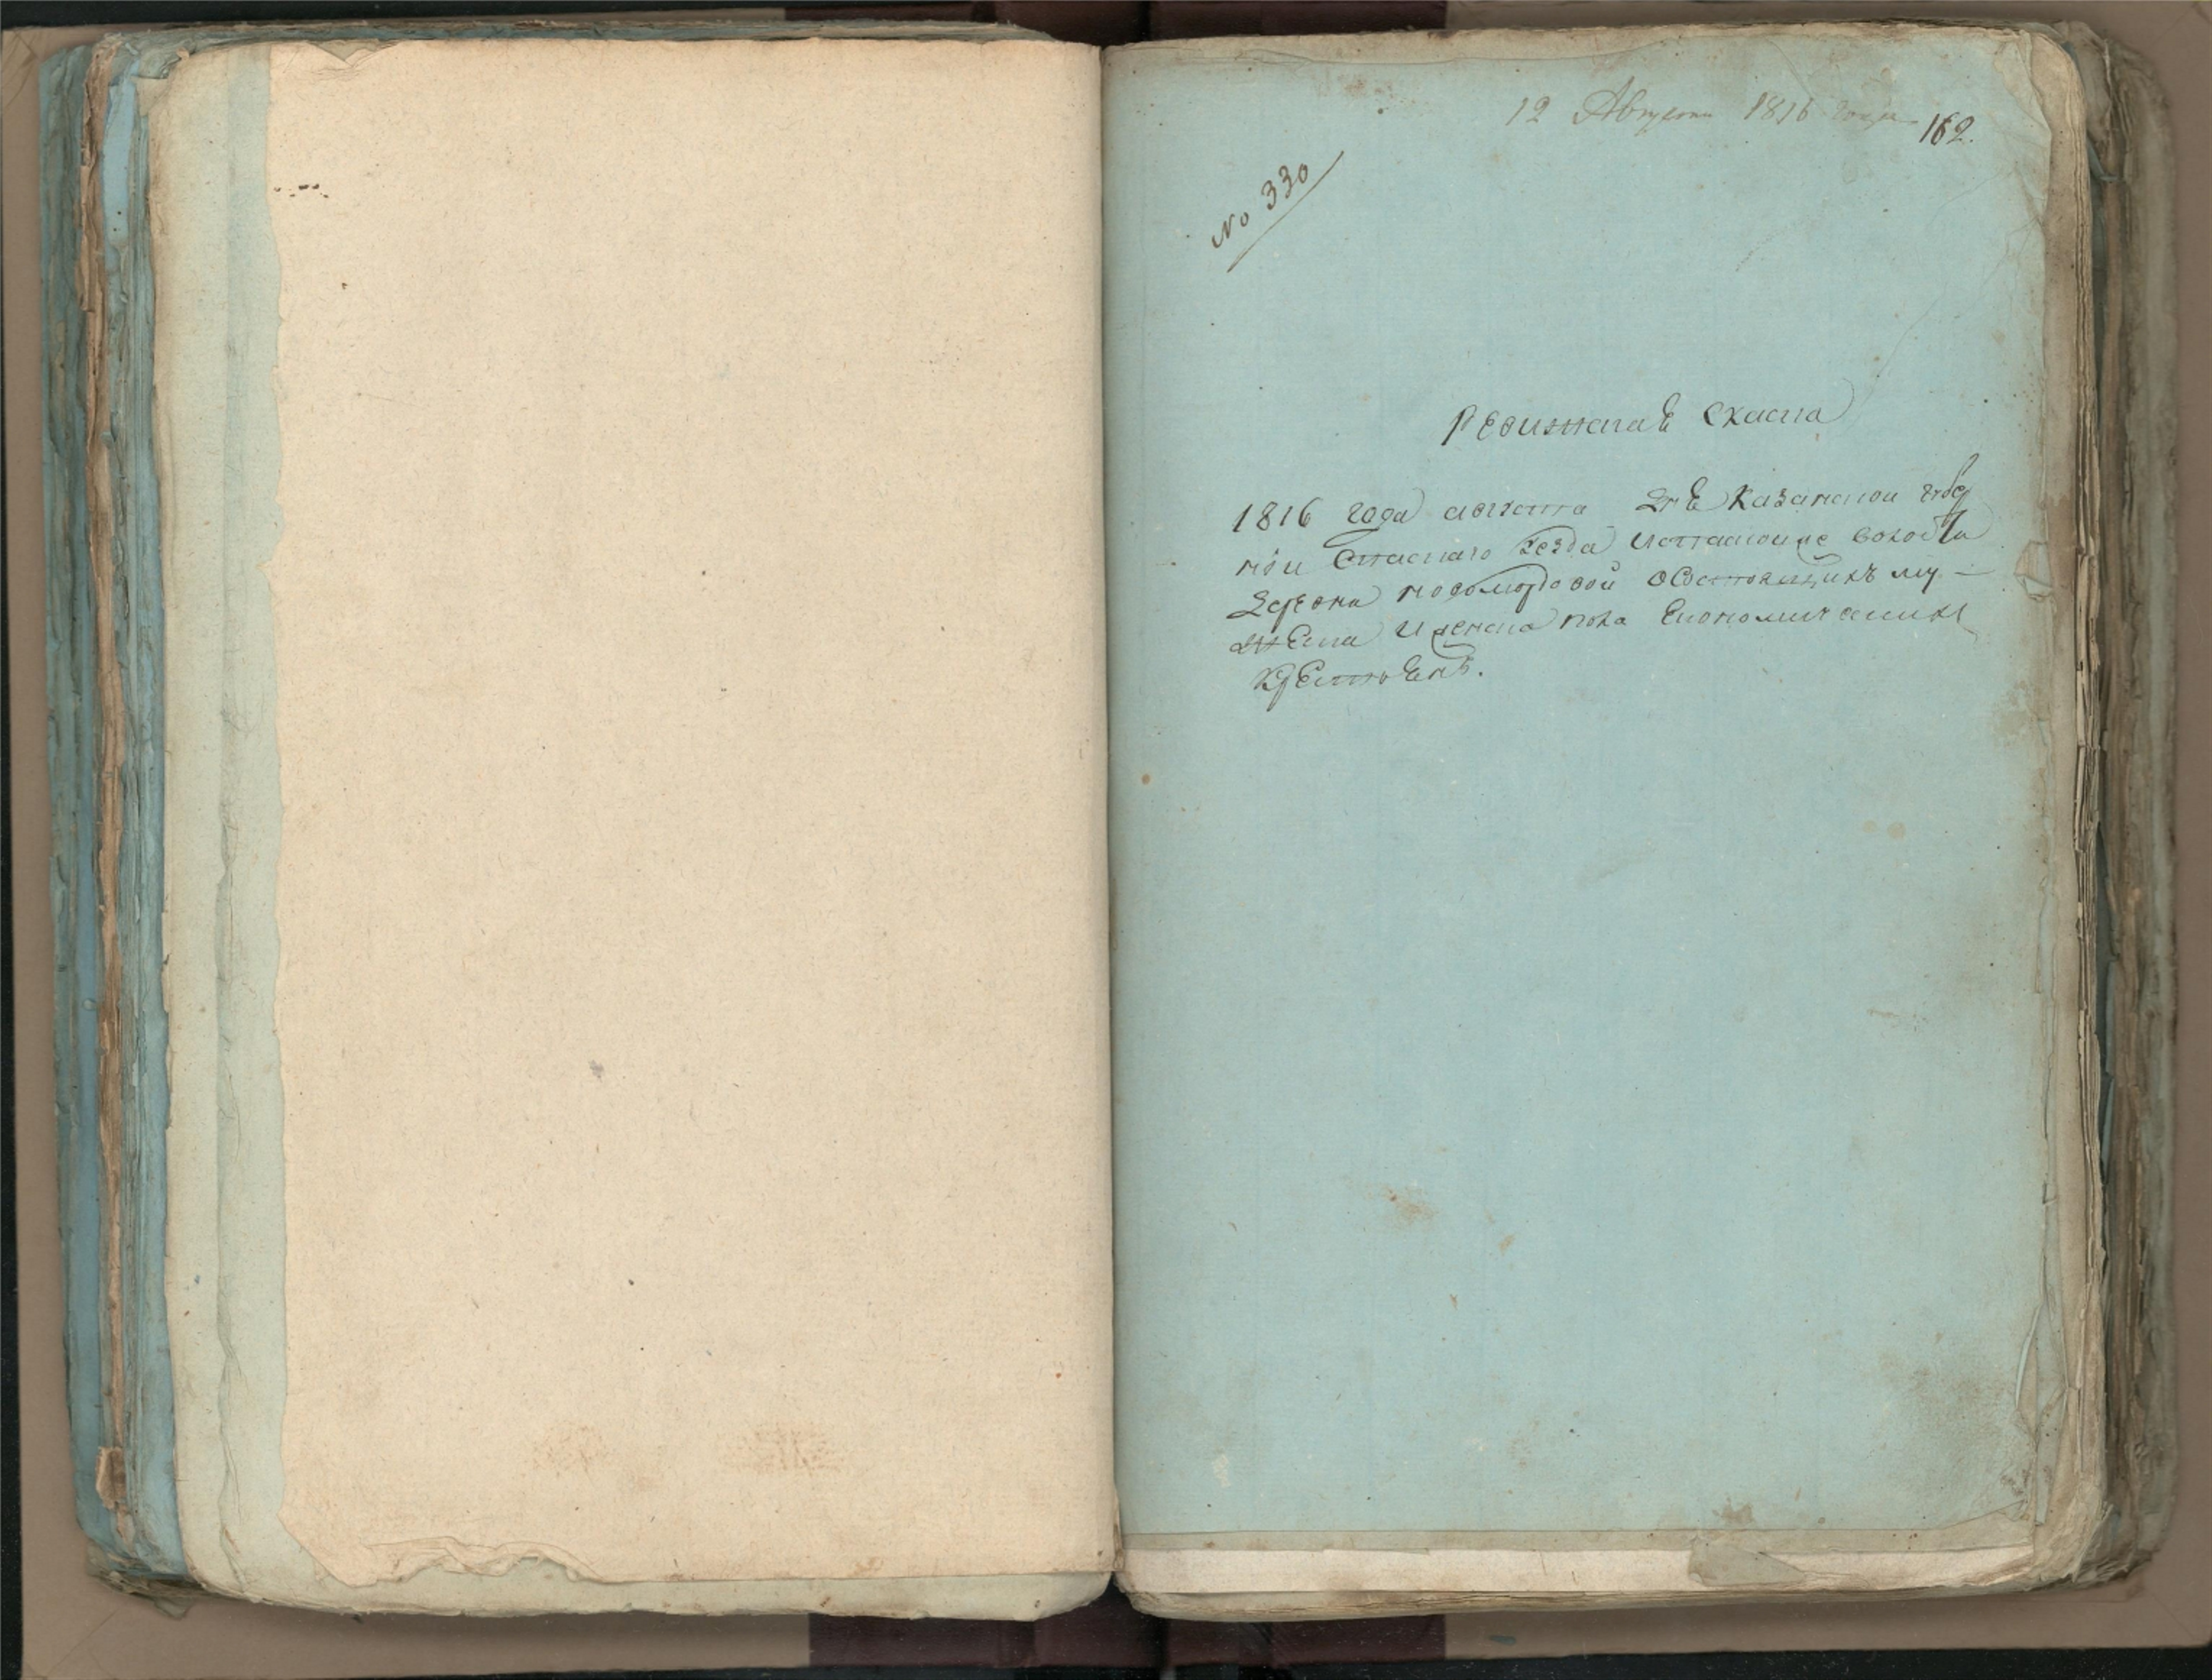 12 Августа 1816 года
162.
№ 330
Ревижская скаска
1816 года августа дня Казанской губер
нiи Спаскаго уезда волости
деревни мордовой о состоящихъ му-
жеска и женска пола Економическихъ
крестьянъ.